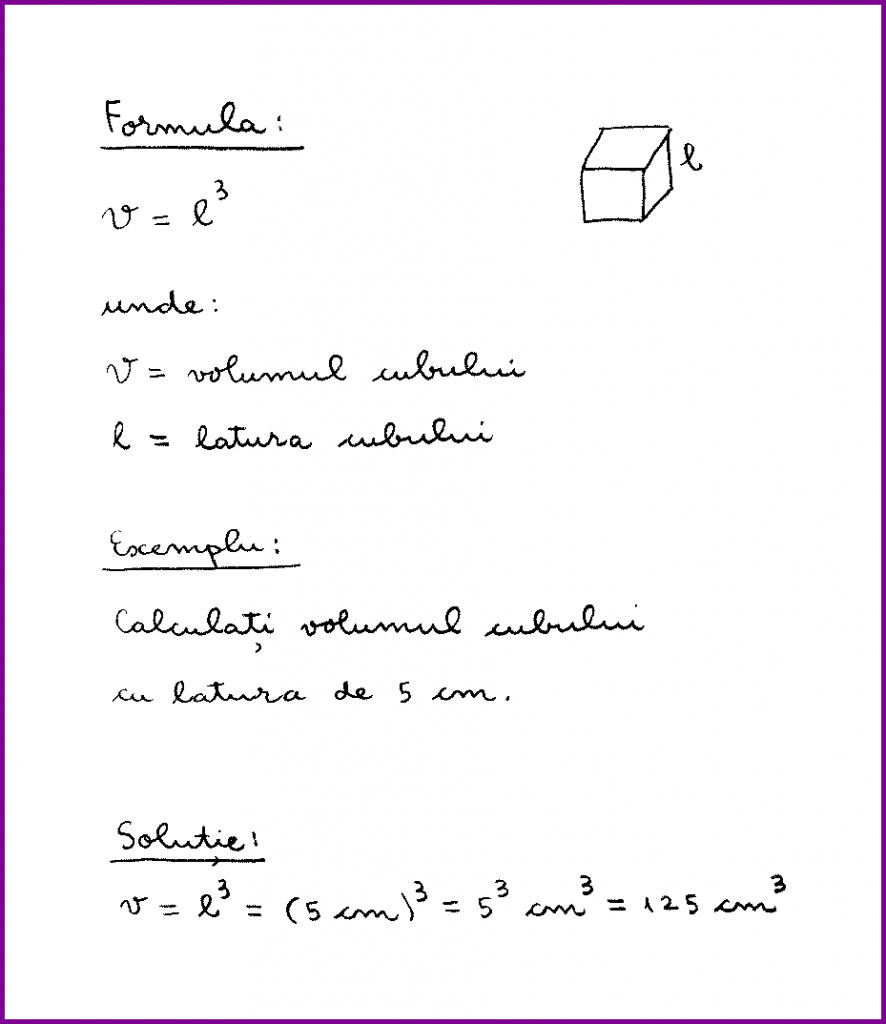 Formula:
l
v = l³
unde:
V = volumul cubului
l = latura cubului
Exemplu:
Calculați volumul cubului
cu latura de 5 cm.
Soluție:
v = l³ = (5 cm)³ = 5³ cm³ = 125 cm³